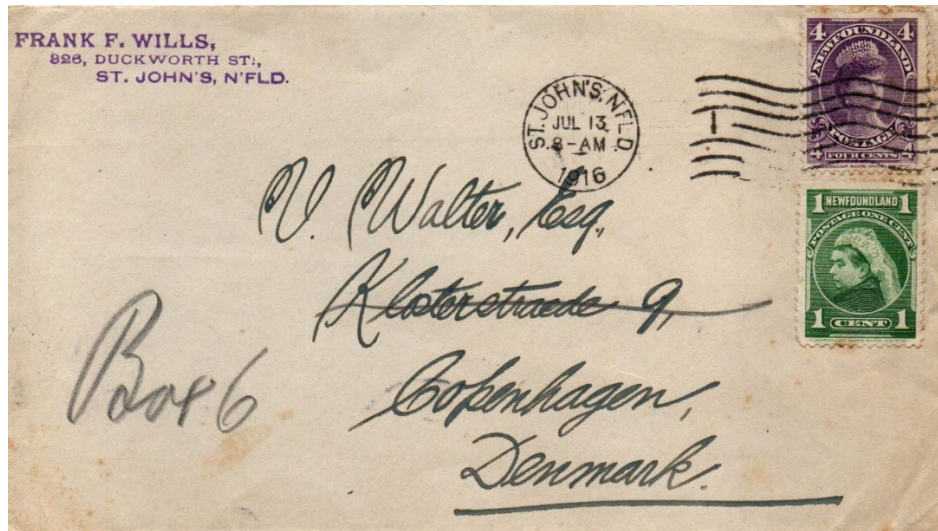 FRANK F. WILLS,
326, DUCKWORTH ST.,
ST. JOHN'S, N'FLD.
ST. JOHN'S. NFLD.
JUL 13
8-AM
1916
4 4
NEWFOUNDLAND
POSTAGE
4 4
FOUR CENTS
1 NEWFOUNDLAND 1
POSTAGE ONE CENT
1 CENT 1
V. Walter, Esq.,
Klosterstraede 9,
Copenhagen,
Denmark.
Box 6